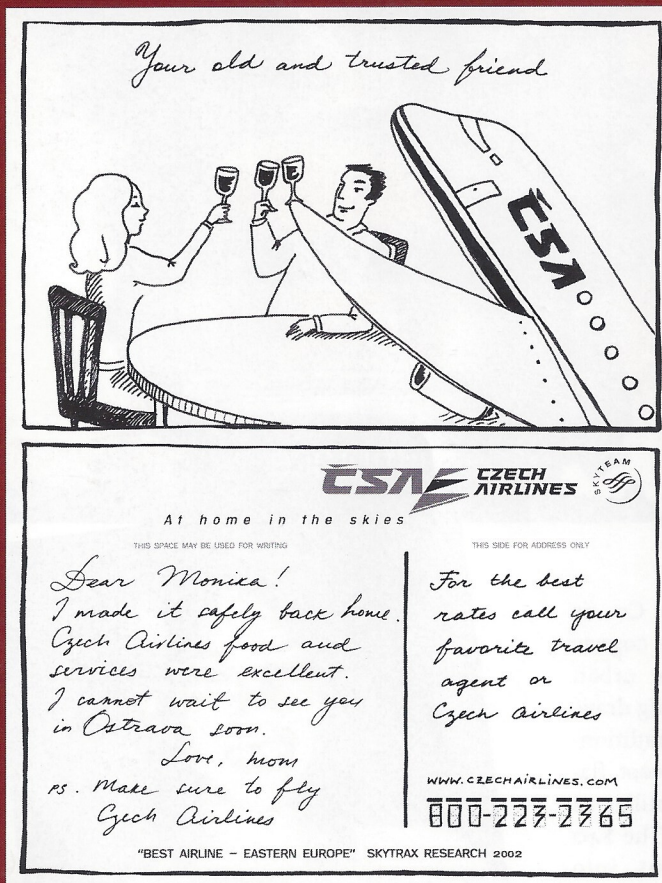 Your old and trusted friend
ČSA
ČSA CZECH
AIRLINES
SKYTEAM
At home in the skies
THIS SPACE MAY BE USED FOR WRITING
THIS SIDE FOR ADDRESS ONLY
Dear Monika!
I made it safely back home.
Czech Airlines food and
services were excellent.
I cannot wait to see you
in Ostrava soon.
Love, mom
PS. Make sure to fly
Czech Airlines
For the best
rates call your
favorite travel
agent or
Czech Airlines
WWW.CZECHAIRLINES.COM
800-223-2365
"BEST AIRLINE – EASTERN EUROPE" SKYTRAX RESEARCH 2002